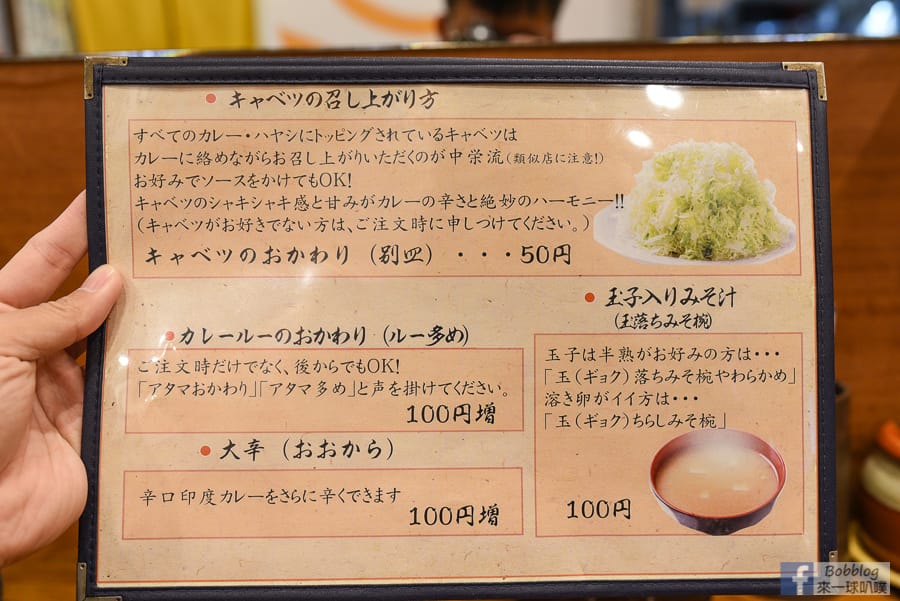 キャベツの召し上がり方
すべてのカレー・ハヤシにトッピングされているキャベツは
カレーに絡めながらお召し上がりいただくのが中栄流(類似店に注意!)
お好みでソースをかけてもOK!
キャベツのシャキシャキ感と甘みがカレーの辛さと絶妙のハーモニー!!
(キャベツがお好きでない方は、ご注文時に申しつけてください。)
キャベツのおかわり(別皿)・・・50円
カレールーのおかわり(ルー多め)
ご注文時だけでなく、後からでもOK!
「アタマおかわり」「アタマ多め」と声を掛けてください。
100円増
大辛(おおから)
辛口印度カレーをさらに辛くできます
100円増
玉子入りみそ汁
(玉落ちみそ椀)
玉子は半熟がお好みの方は・・・
「玉(ギョク)落ちみそ椀やわらかめ」
溶き卵がイイ方は・・・
「玉(ギョク)ちらしみそ椀」
100円
f
Bobblog
來一球叭噗